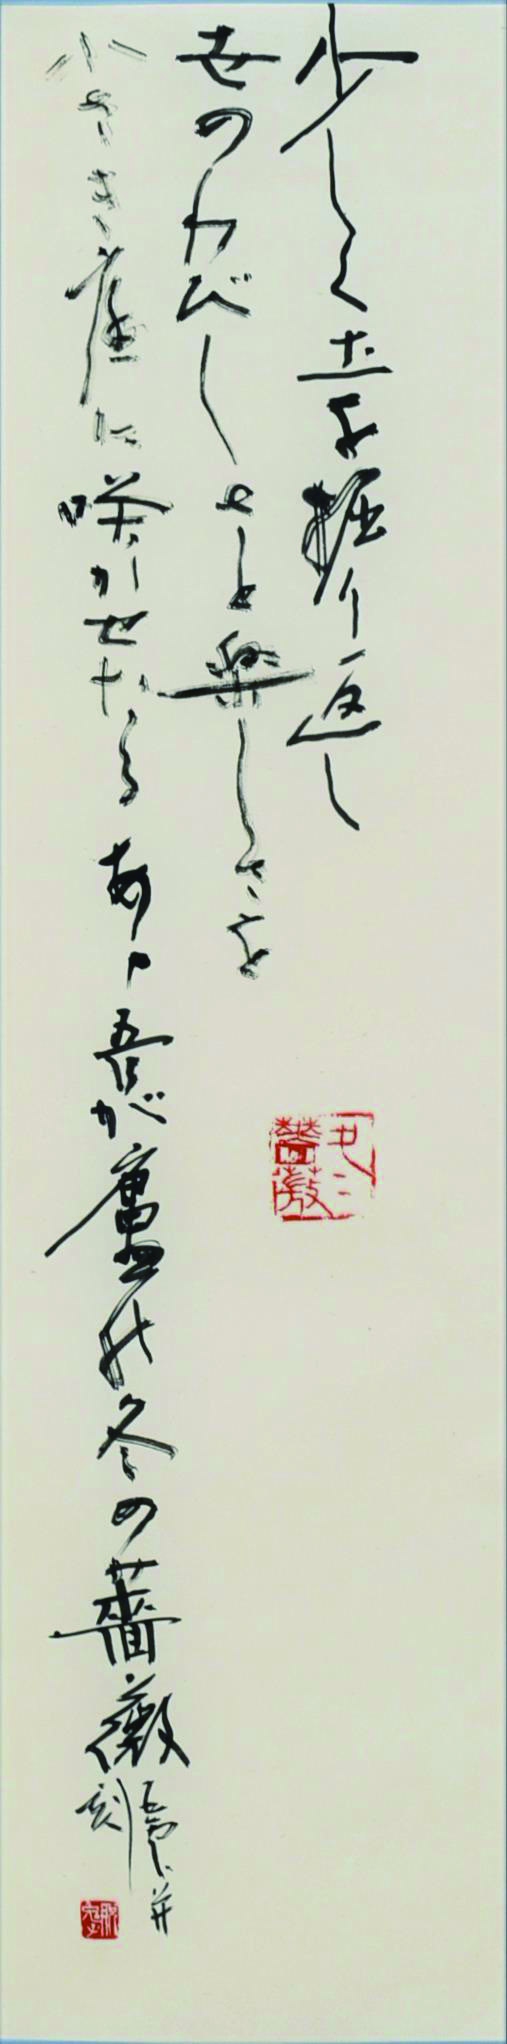 少しく土を掘り返し
世のわびしさと楽しさを
小さき庭に咲かせたる あゝ吾が廬の冬の薔薇
并
刻
薔薇